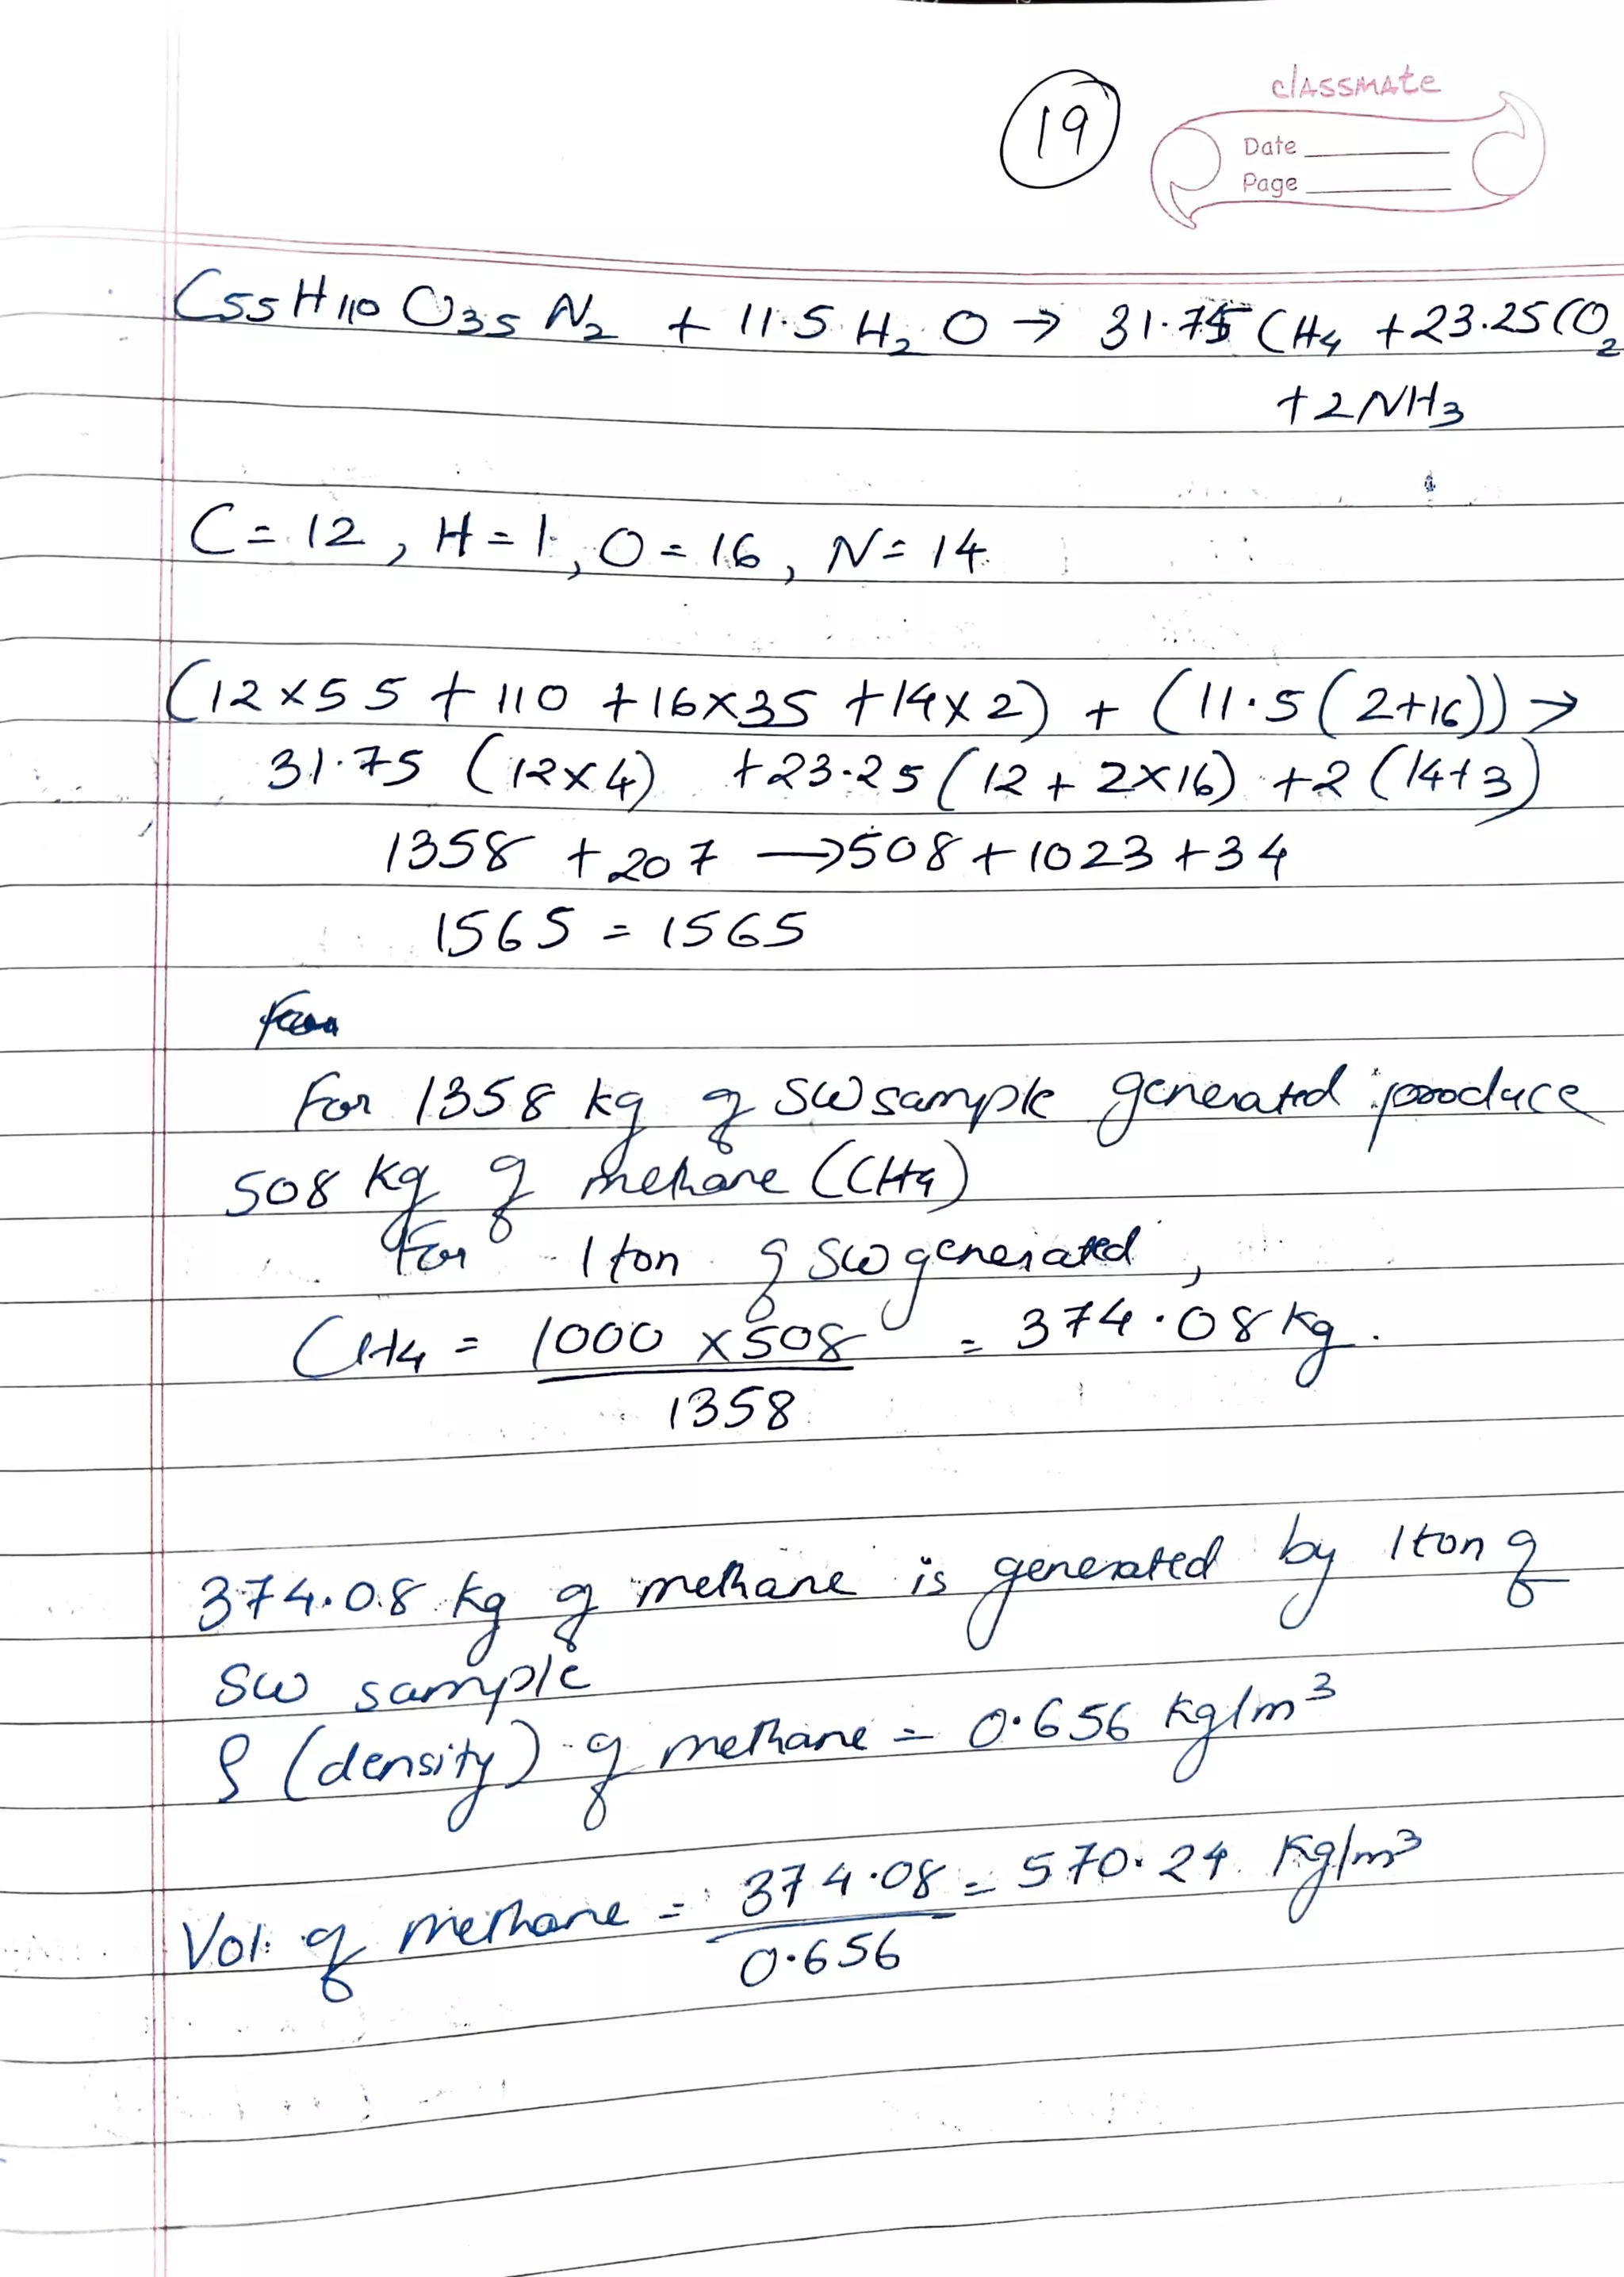 19
classmate
Date
Page
C55 H110 O35 N2 + 11.5 H2O → 31.75 CH4 + 23.25 CO2
+ 2NH3
C = 12, H = 1, O = 16, N = 14
(12 × 55 + 110 + 16 × 35 + 14 × 2) + (11.5 (2+16)) →
31.75 (12 × 4) + 23.25 (12 + 2 × 16) + 2 (14+3)
1358 + 207 → 508 + 1023 + 34
1565 = 1565
For 1358 kg of SW sample generated produce
508 kg of methane (CH4)
For 1 ton of SW generated,
CH4 = 1000 × 508 = 374.08 kg.
1358
374.08 kg of methane is generated by 1 ton of
SW sample
ρ (density) of methane = 0.656 kg/m³
Vol. of methane = 374.08 = 570.24 Kg/m³
0.656